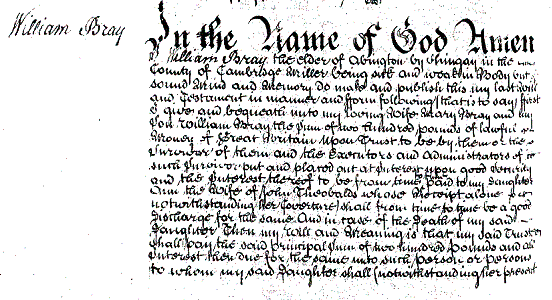 William Bray
In the Name of God Amen
I William Bray the elder of Abington by Shingay in the
County of Cambridge Miller being sick and weak in Body but
sound Mind and Memory do make and publish this my last Will
and Testament in manner and form following (that is to say) first
I give and bequeath unto my loving Wife Mary Bray and my
Son William Bray the Sum of two hundred pounds of lawful
Money of Great Britain Upon Trust to be by them or the
Survivor of them and the Executors and Administrators of
such Survivor put and placed out at Interest upon good Security
and the Interest thereof to be from time paid to my Daughter
Ann the Wife of John Theobalds whose Receipt alone
notwithstanding her Coverture shall from time to time be a good
discharge for the same And in case of the death of my said
Daughter Then my Will and Meaning is that my said Trustees
shall pay the said principal Sum of two hundred Pounds and
Interest then due for the same unto such person or persons
to whom my said Daughter shall (notwithstanding her present